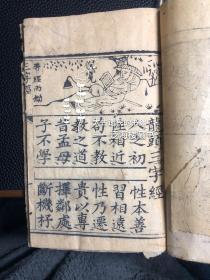 龍頭三字經
人之初 性本善
性相近 習相遠
苟不教 性乃遷
教之道 貴以專
昔孟母 擇鄰處
子不學 斷機杼
三字經